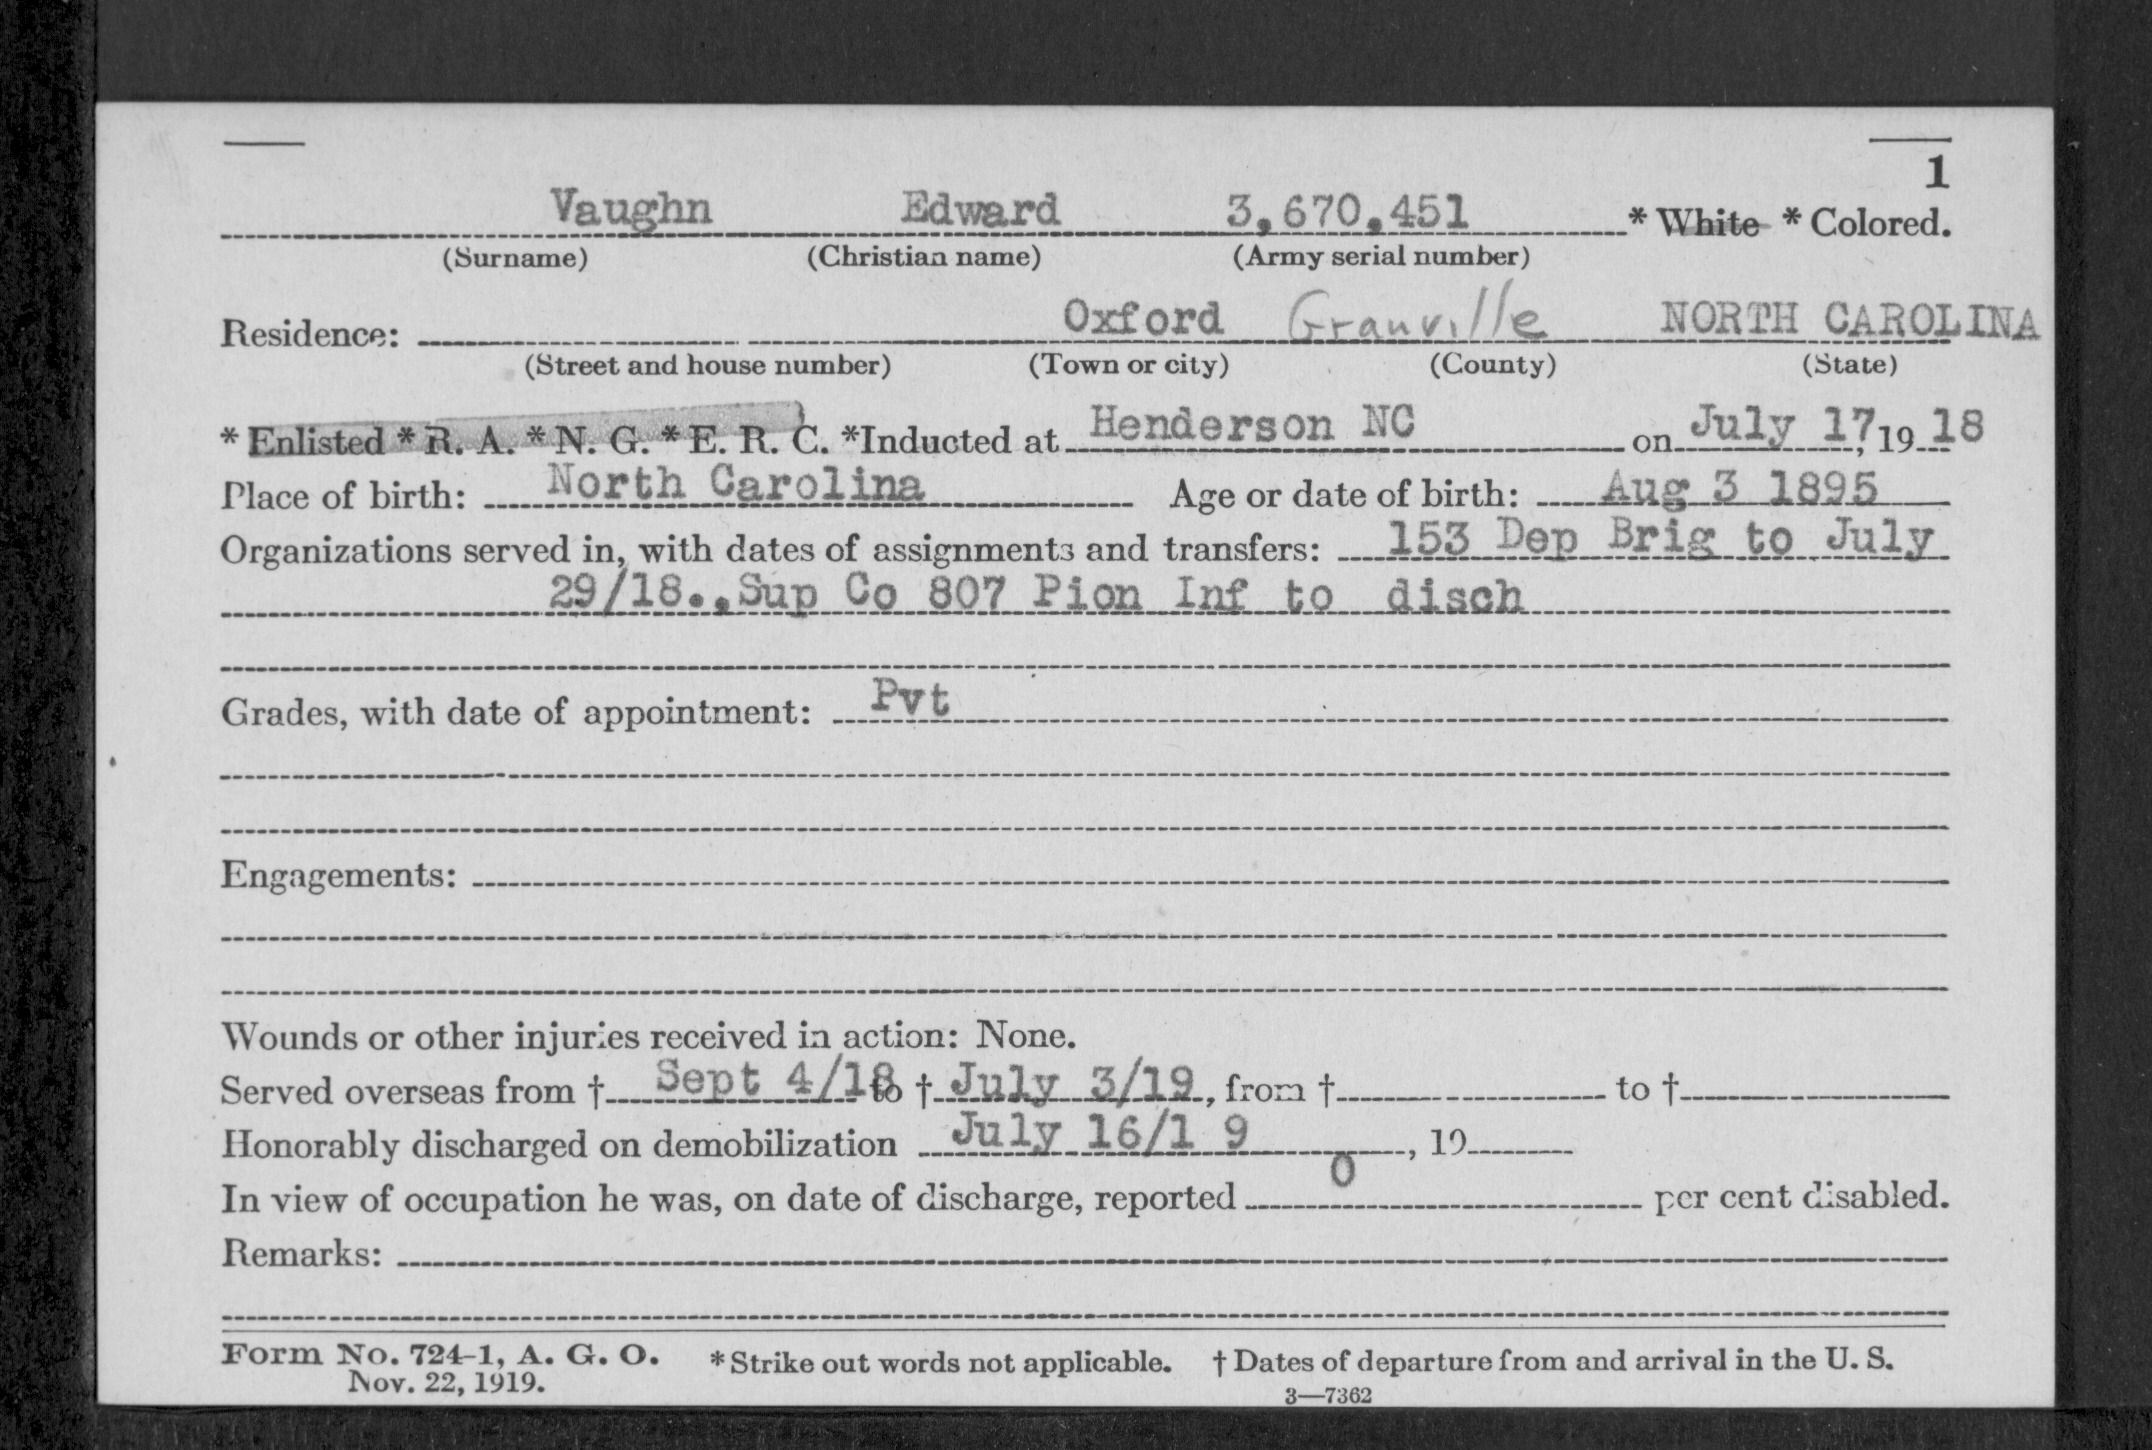 1
Vaughn Edward 3,670,451 * White * Colored.
(Surname) (Christian name) (Army serial number)
Residence: Oxford Granville NORTH CAROLINA
(Street and house number) (Town or city) (County) (State)
* Enlisted * R. A. * N. G. * E. R. C. *Inducted at Henderson NC on July 17, 19 18
Place of birth: North Carolina Age or date of birth: Aug 3 1895
Organizations served in, with dates of assignments and transfers: 153 Dep Brig to July
29/18., Sup Co 807 Pion Inf to disch
Grades, with date of appointment: Pvt
Engagements:
Wounds or other injuries received in action: None.
Served overseas from † Sept 4/18 to † July 3/19, from † to †
Honorably discharged on demobilization July 16/1 9, 19
In view of occupation he was, on date of discharge, reported 0 per cent disabled.
Remarks:
Form No. 724-1, A. G. O. * Strike out words not applicable. † Dates of departure from and arrival in the U. S.
Nov. 22, 1919.
3—7362